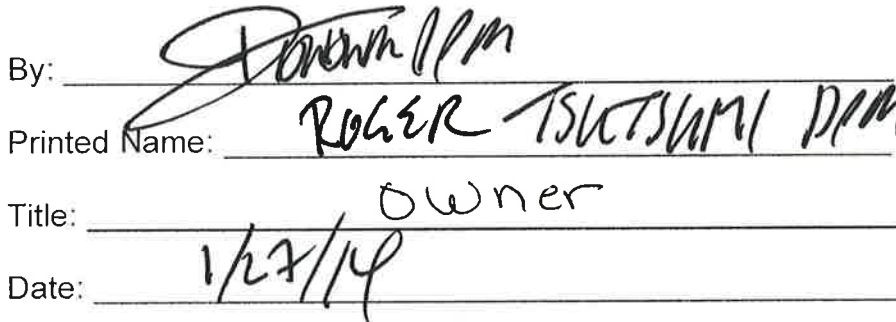 By: DPM
Printed Name: ROGER TSUTSUMI DPM
Title: Owner
Date: 1/27/14